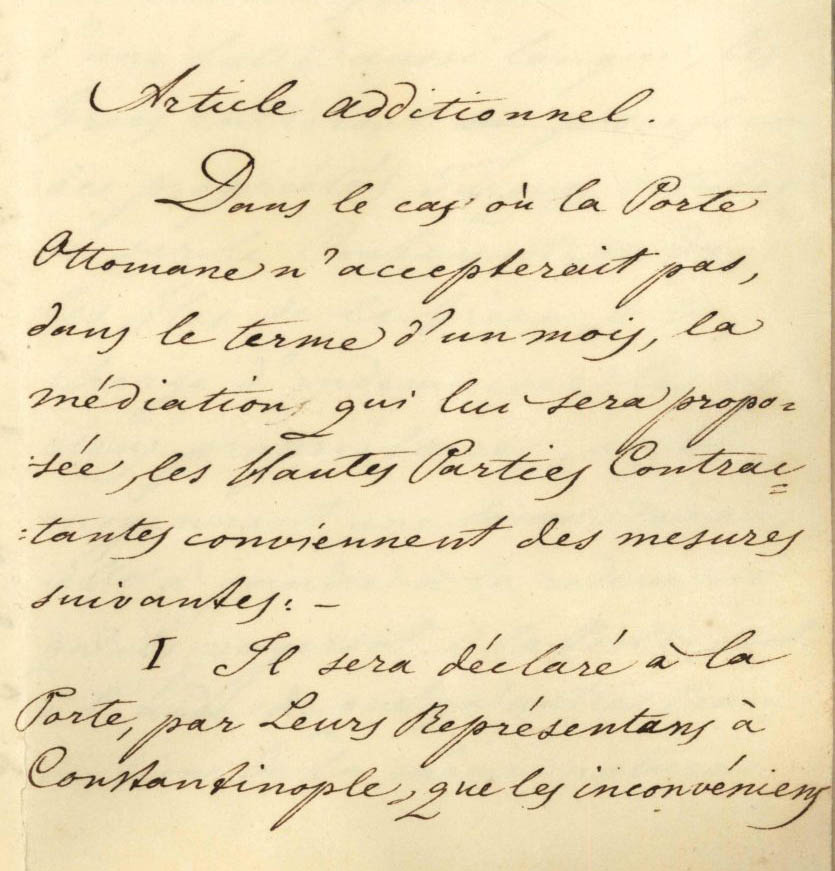 Article additionnel.
Dans le cas où la Porte
Ottomane n'accepterait pas,
dans le terme d'un mois, la
médiation qui lui sera propo=
sée, les Hautes Parties Contrac=
=tantes conviennent des mesures
suivantes: -
I Il sera déclaré à la
Porte, par Leurs Représentans à
Constantinople, que les inconvéniens